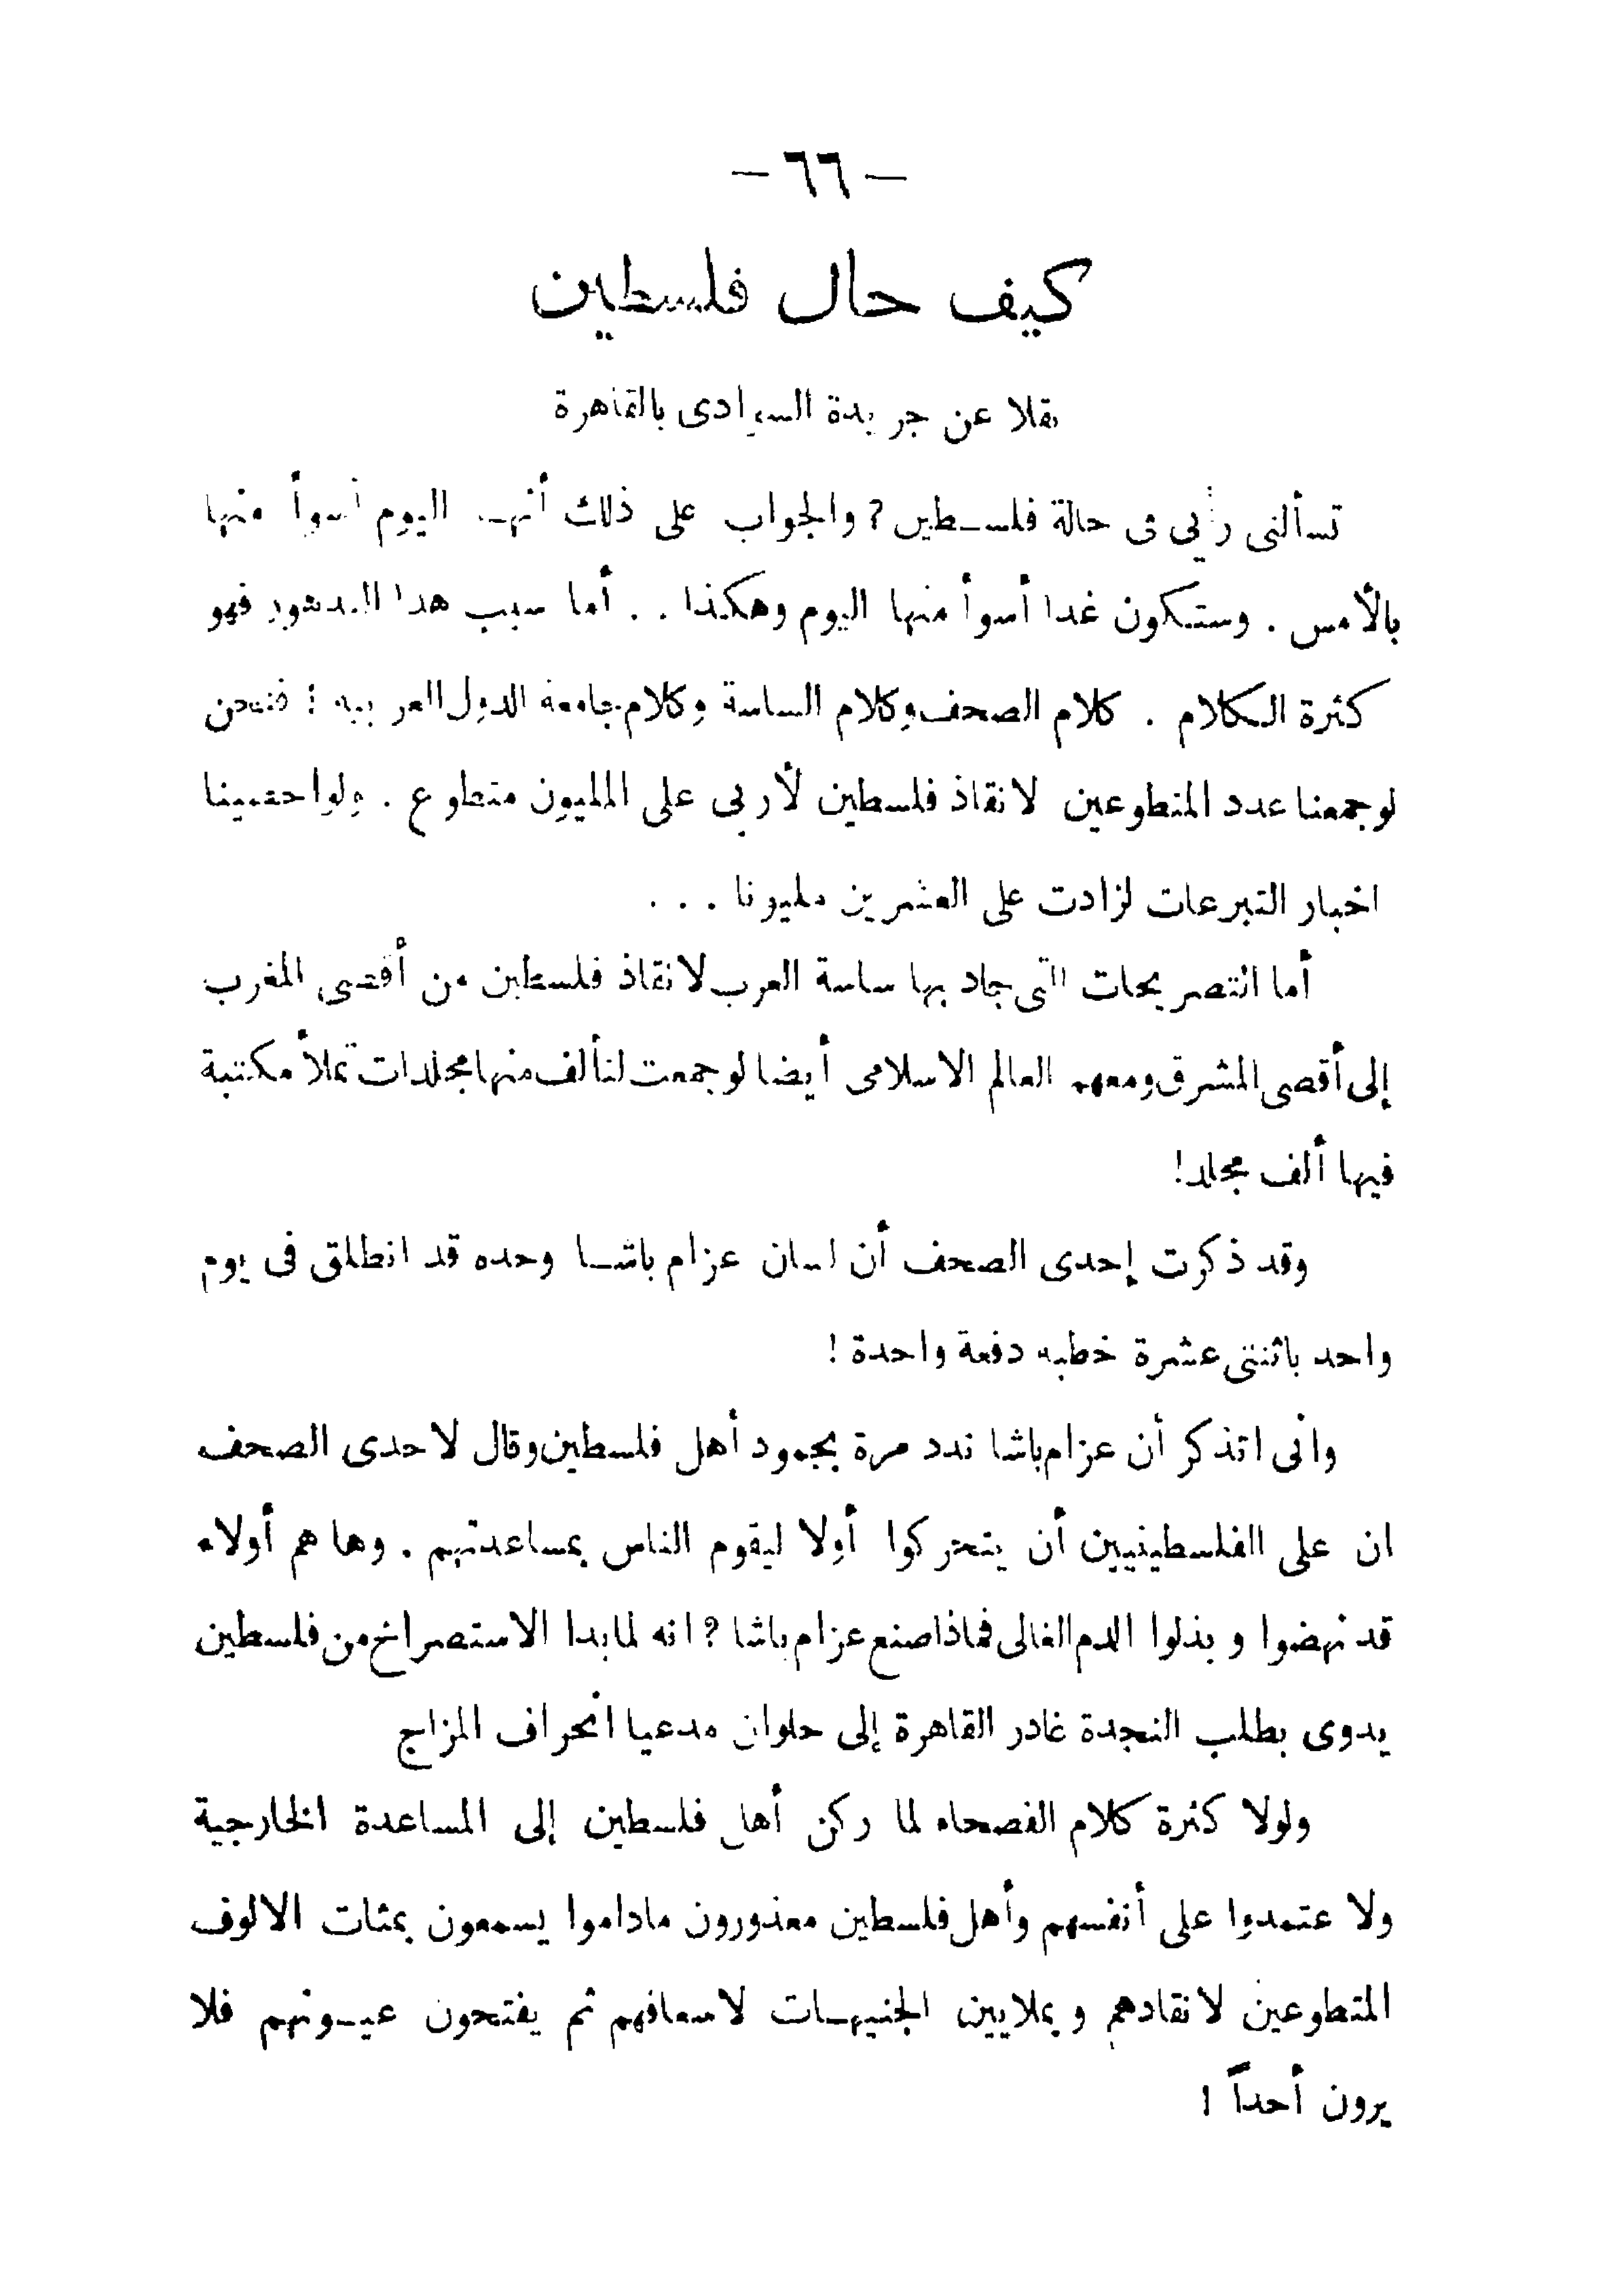 — ٦٦ —
كيف حال فلسطين
نقلا عن جريدة السوادى بالقاهرة
تسألنى رأيى فى حالة فلسطين ؟ والجواب على ذلك أنها اليوم أسوأ منها
بالأمس . وستكون غدا أسوأ منها اليوم وهكذا . . أما سبب هذا التدهور فهو
كثرة الكلام . كلام الصحف وكلام الساسة وكلام جامعة الدول العربية ! فنحن
لو جمعنا عدد المتطوعين لانقاذ فلسطين لأربى على المليون متطوع . ولو احصينا
اخبار التبرعات لزادت على العشرين مليونا . . .
أما التصريحات التى جاد بها ساسة العرب لانقاذ فلسطين من أقصى المغرب
إلى أقصى المشرق ومعهم العالم الاسلامى أيضا لو جمعت لتألف منها مجلدات تملأ مكتبة
فيها ألف مجلد !
وقد ذكرت إحدى الصحف أن لسان عزام باشا وحده قد انطلق فى يوم
واحد باثنتى عشرة خطبه دفعة واحدة !
وانى اتذكر أن عزام باشا ندد مرة بجمود أهل فلسطين وقال لاحدى الصحف
ان على الفلسطينيين أن يتحركوا أولا ليقوم الناس بمساعدتهم . وها هم أولاء
قد نهضوا وبذلوا الدم الغالى فماذا صنع عزام باشا ؟ انه لما بدا الاستصراخ من فلسطين
يدوى بطلب النجدة غادر القاهرة إلى حلوان مدعيا انحراف المزاج
ولولا كثرة كلام الفصحاء لما ركن أهل فلسطين إلى المساعدة الخارجية
ولا عتمدوا على أنفسهم وأهل فلسطين معذورون ماداموا يسمعون بمئات الالوف
المتطوعين لانقادهم وبملايين الجنيهات لاسعافهم ثم يفتحون عيونهم فلا
يرون أحداً !